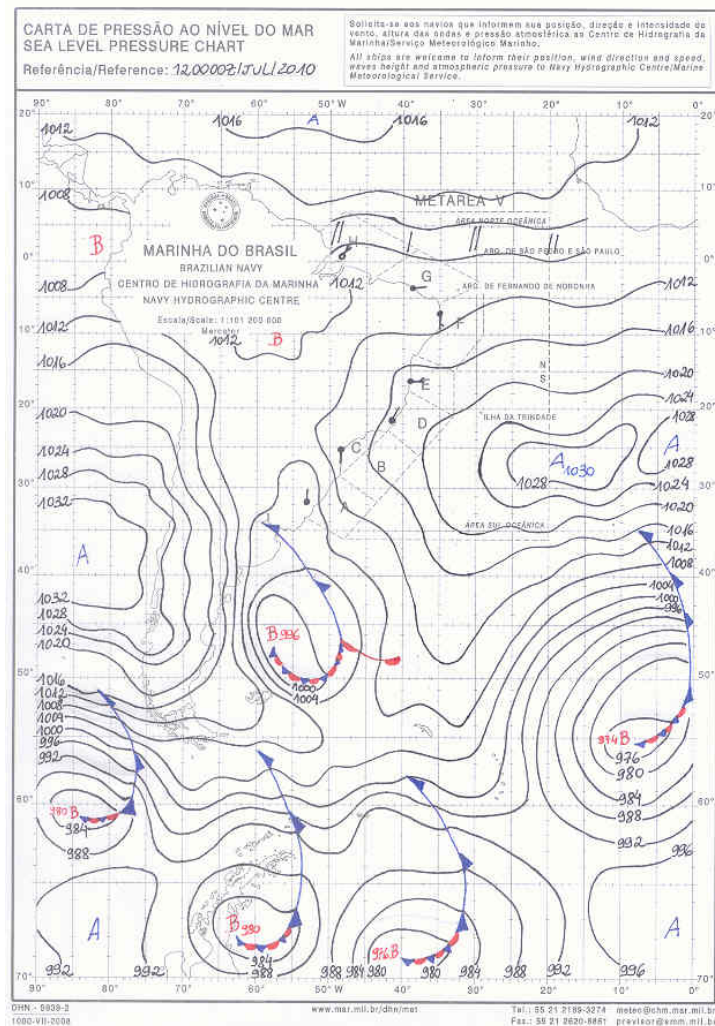 CARTA DE PRESSÃO AO NÍVEL DO MAR
SEA LEVEL PRESSURE CHART
Referência/Reference: 120000Z/JUL/2010
Solicita-se aos navios que informem sua posição, direção e intensidade do
vento, altura das ondas e pressão atmosférica ao Centro de Hidrografia da
Marinha/Serviço Meteorológico Marinho.
All ships are welcome to inform their position, wind direction and speed,
waves height and atmospheric pressure to Navy Hydrographic Centre/Marine
Meteorological Service.
90° 80° 70° 60° 50°W 40° 30° 20° 10° 0°
20° 20°
1012 1016 A 1016 1012
10° 10°
1008
METAREA V
ÁREA NORTE OCEÂNICA
B H
MARINHA DO BRASIL
ARQ. DE SÃO PEDRO E SÃO PAULO
0° 0°
BRAZILIAN NAVY
CENTRO DE HIDROGRAFIA DA MARINHA
NAVY HYDROGRAPHIC CENTRE
G
1012 1012
ARQ. DE FERNANDO DE NORONHA
1008
Escala/Scale: 1:101 200 000
Mercator
F
1012 1012 B 1016
10° 10°
1016
N
S
1020
E
1020 1024
20° 20°
D ILHA DA TRINDADE
1028
1024 C A
B A 1030
1028 1028 1028
1024
30° 30°
1032 1020
A ÁREA SUL OCEÂNICA
1016
1012
A
1008
40° 40°
1004
1000
996
1032
1028 B 996
1024
1020
50° 50°
1016 1000
1012 1004
1008
1004
1000 974 B
996 976
992 980
60° 60°
980 B 984
984 988
988 992
996
A B 980 976 B A
984
70° 992 992 988 988 984 980 980 984 988 992 996 70°
90° 80° 70° 60° 50° 40° 30° 20° 10° 0°
DHN - 5938-2
1080-VII-2008
www.mar.mil.br/dhn/met
Tel.: 55 21 2189-3274 meteo@chm.mar.mil.br
Fax.: 55 21 2620-8861 previsor@smm.mil.br